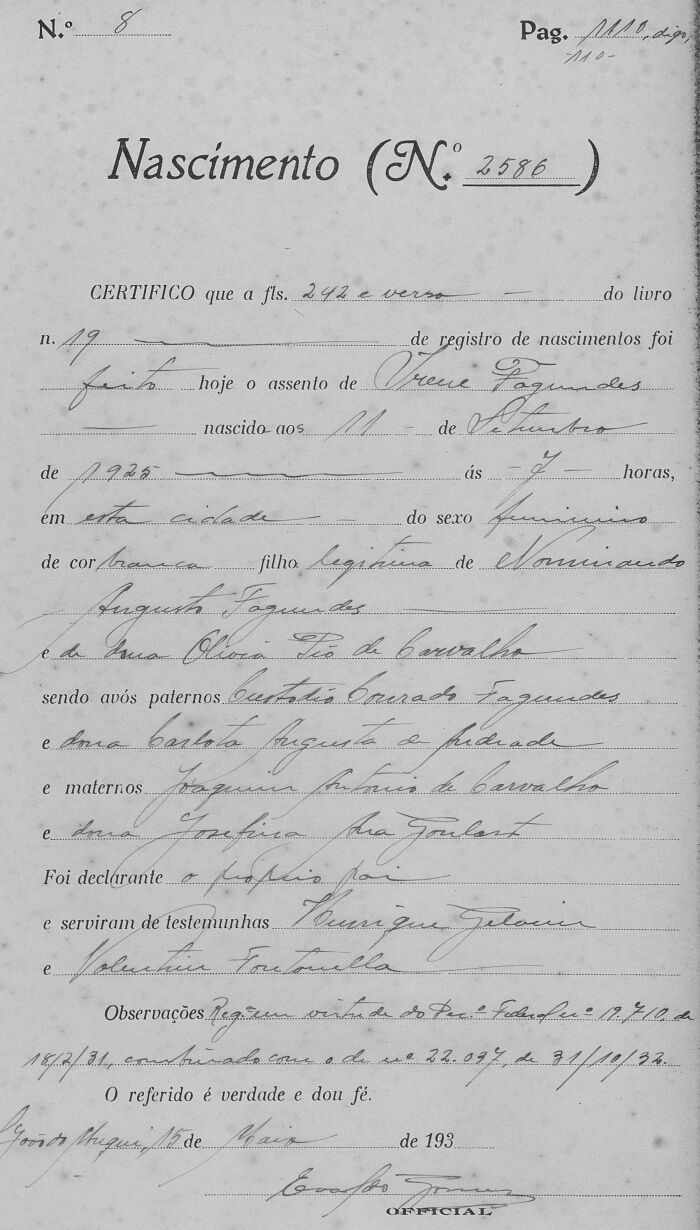 N.º 8 Pag. 1110, digo,
-110-
Nascimento (N.º 2586)
CERTIFICO que a fls. 242 e verso — do livro
n. 19 — de registro de nascimentos foi
feito hoje o assento de Irene Fagundes
— nascido aos 11 - de Setembro
de 1925 — ás - 7 - horas,
em esta cidade - do sexo feminino
de cor branca filho legitima de Nominando
Augusto Fagundes —
e de dona Olivia Pio de Carvalho
sendo avós paternos Custodio Conrado Fagundes
e dona Carlota Augusta de Andrade
e maternos Joaquim Antonio de Carvalho
e dona Josefina Ana Goulart
Foi declarante o proprio pai
e serviram de testemunhas Henrique
e Valentim Fontanella
Observações Reg.º em virtude do Dec.º Federal nº 19.710, de
18/2/31, combinado com o de nº 22.037, de 31/10/32.
O referido é verdade e dou fé.
15 de Maio de 193
Evaldo Gomes
OFFICIAL